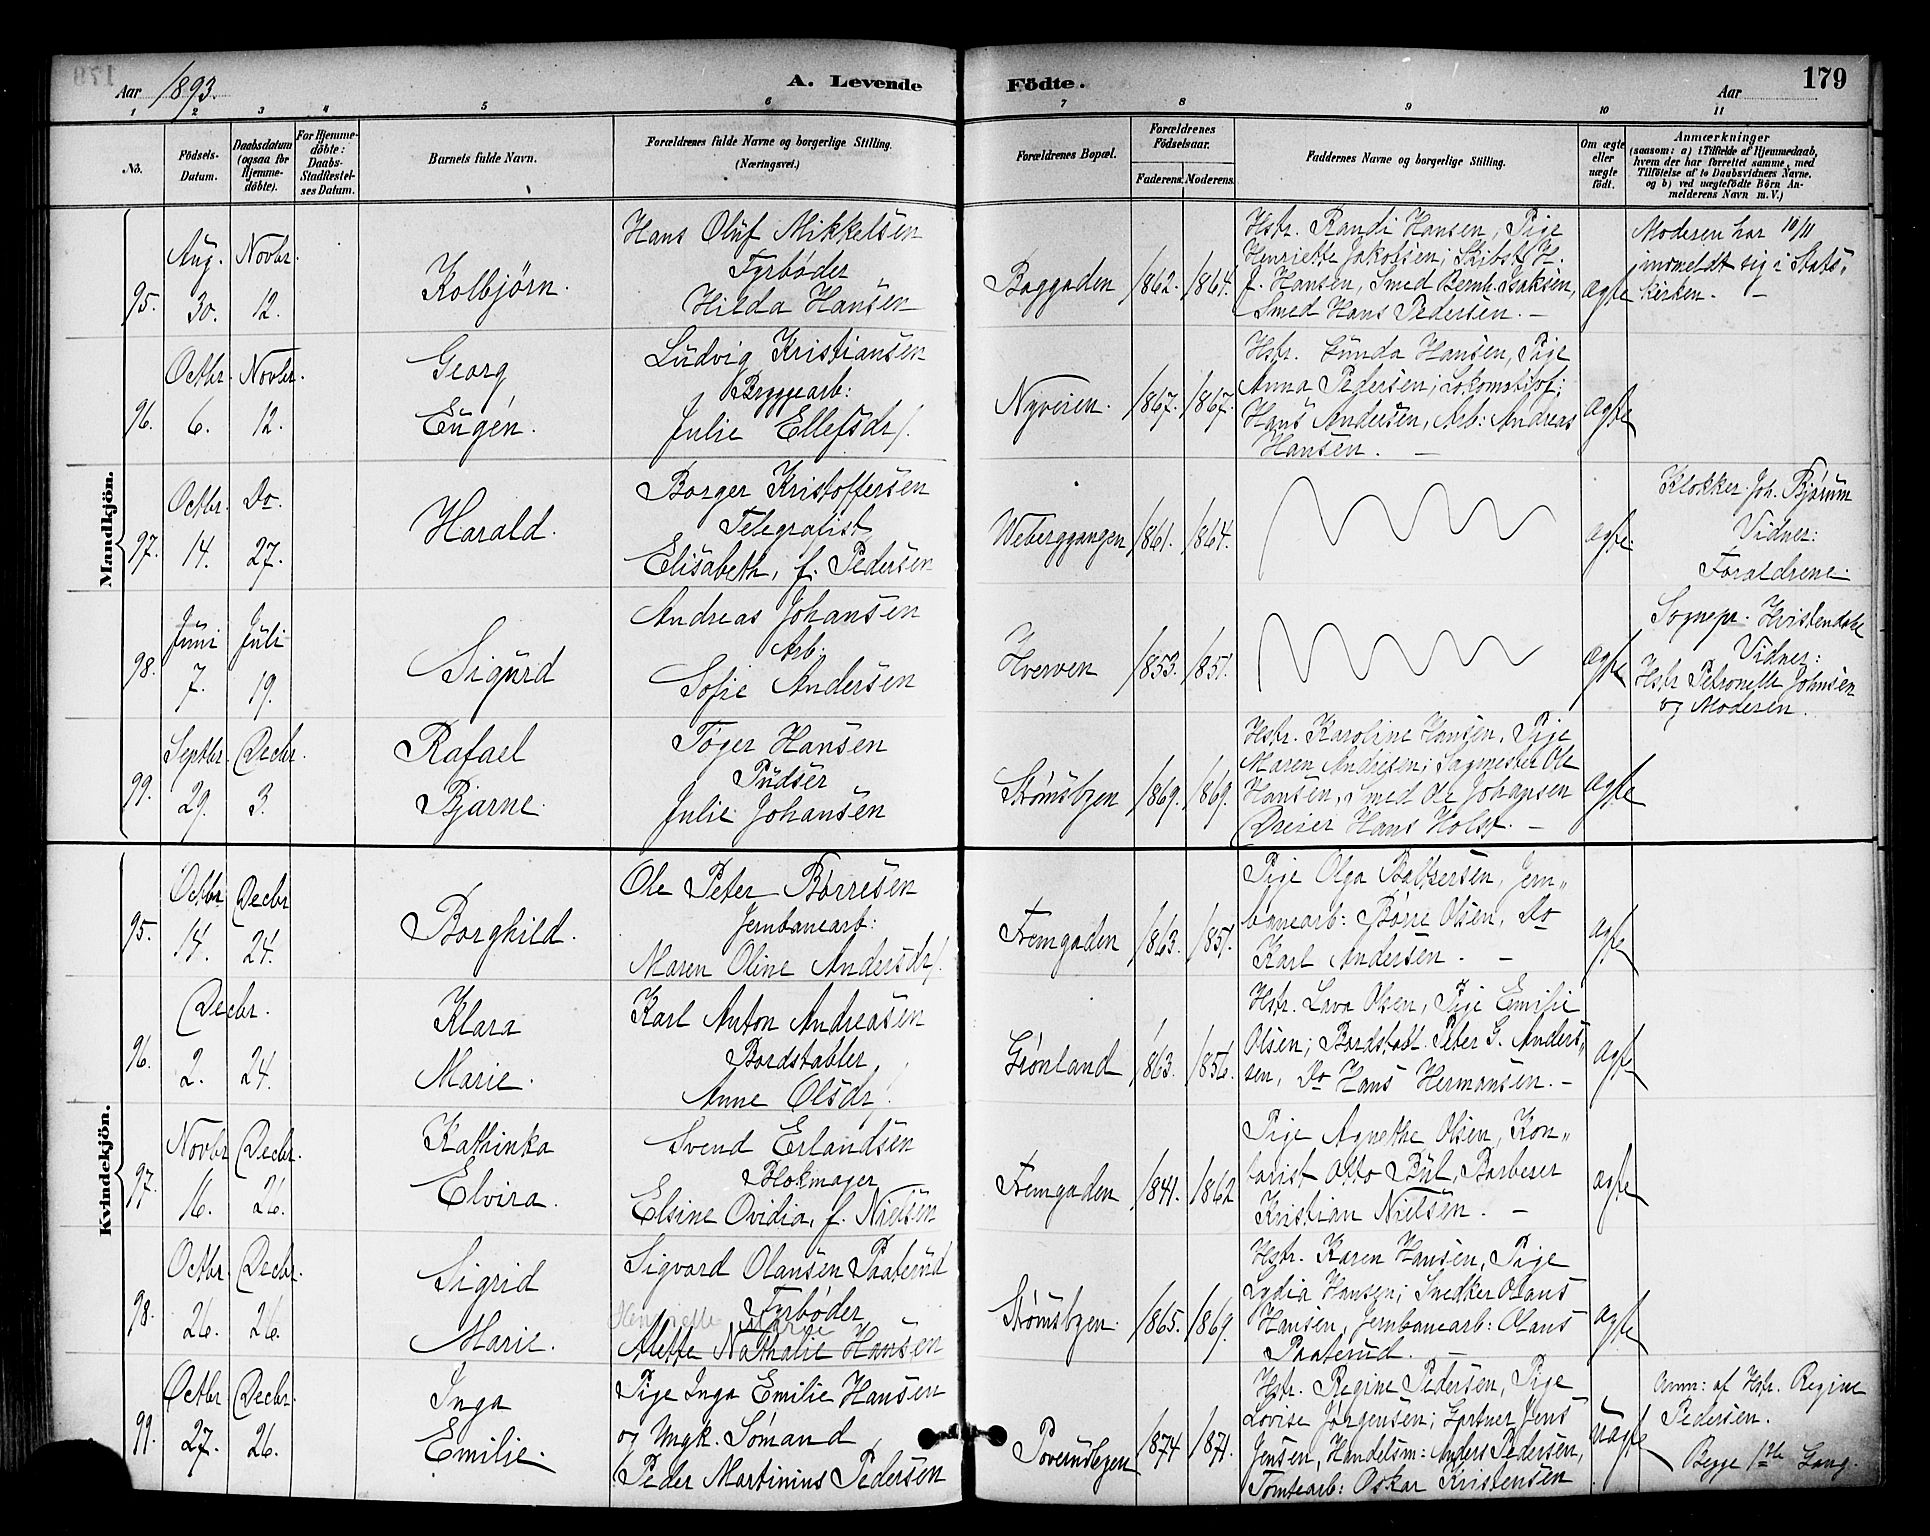 179
Aar 1893.
A. Levende Födte.
Aar
1 2 3 4 5 6 7 8 9 10 11
No.
Födsels-Datum.
Daabsdatum (ogsaa for Hjemmedöbte).
For Hjemmedöbte: Daabs-Stadfæstelses Datum.
Barnets fulde Navn.
Forældrenes fulde Navne og borgerlige Stilling. (Næringsvei.)
Forældrenes Bopæl.
Forældrenes Födselsaar.
Faderens. Moderens.
Faddernes Navne og borgerlige Stilling.
Om ægte eller uægte födt.
Anmærkninger
(saasom: a) i Tilfælde af Hjemmedaab,
hvem der har forrettet samme, med
Tilföielse af to Daabsvidners Navne.
og b) ved uægtefödte Börn An-
melderens Navn m. V.)
Mandkjön.
95.
Aug. 30.
Novbr. 12.
Kolbjörn.
Hans Oluf Mikkelsen
Fyrbøder
Hilda Hansen
Baggaden
1862. 1864.
Hstr. Randi Hansen, Pige
Henriette Jakobsen; Skibst. H.
J. Hansen, Smed Bernh. Isaksen,
Smed Hans Pedersen. —
ægte
Moderen har 10/11
indmeldt sig i Stats-
kirken. —
96.
Octbr. 6.
Novbr. 12.
Georg
Eugén.
Ludvig Kristiansen
Bryggearb:
Julie Ellefsdr.
Nyveien.
1867. 1867.
Hstr. Gunda Hansen, Pige
Anna Pedersen; Lokomotivf:
Hans Andersen, Arb: Andreas
Hansen. —
ægte
97.
Octbr. 14.
Do. 27.
Harald.
Borger Kristoffersen
Telegrafist
Elisabeth, f. Pedersen
Weberggangen
1861. 1864.
ægte.
Klokker Joh. Bjørum
Vidner:
Forældrene.
98.
Juni 7.
Juli 19.
Sigurd
Andreas Johansen
Arb.
Sofie Andersen
Hverven
1853. 1851.
ægte
Sognepr. Hvistendahl
Vidner:
Hstr Petronelle Johnsen
og Moderen.
99.
Septbr. 29.
Decbr. 3.
Rafael
Bjarne.
Tøger Hansen
Pudser
Julie Johansen
Strømsbyen
1869. 1869.
Hstr. Karoline Hansen, Pige
Maren Andresen; Sagmester Ole
Hansen, Smed Ole Johansen
Dreier Hans Holst. —
ægte
Kvindekjön.
95.
Octbr 14.
Decbr 24.
Borghild.
Ole Peter Børresen
Jernbanearb:
Maren Oline Andersdr.
Fremgaden
1863. 1857.
Pige Olga Baltsersen, Jern-
banearb: Børre Olsen, Do
Karl Andersen. —
ægte
96.
Decbr. 2.
24.
Klara
Marie.
Karl Anton Andreasen
Bordstabler
Anne Olsdr.
Grønland
1863. 1856.
Hstr. Lava Olsen, Pige Emilie
Olsen; Bordstabl. Peter G. Anders-
sen, Do Hans Hermansen. —
ægte
97.
Novbr 16.
Decbr. 26.
Kathinka
Elvira.
Svend Erlandsen
Blokmager
Elsine Ovidia, f. Nielsen
Fremgaden
1841. 1862
Pige Agnethe Olsen, Kon-
torist Otto Bul, Barberer
Kristian Nielsen. —
ægte
98.
Octbr. 26.
Decbr. 26.
Sigrid
Marie.
Sigvard Olausen Paaterud
Fyrbøder
Henriette Marie
Alette Nathalie Hansen
Strømsbyen.
1865. 1869.
Hstr. Karen Hansen, Pige
Lydia Hansen; Snedker Olaus
Hansen, Jernbanearb: Olaus
Paaterud. —
ægte
99.
Octbr 27.
Decbr. 26.
Inga
Emilie.
Pige Inga Emilie Hansen
og Ungk. Sømand
Peder Martinius Pedersen
Poverudbyen
1874 1871.
Hstr. Regine Pedersen, Pige
Lovise Jørgensen; Gartner Jens
Jensen, Handelsm: Anders Pedersen,
Tomtearb: Oskar Kristensen
uægte
Anm: af Hstr. Regine
Pedersen.
Begge 1ste Gang.